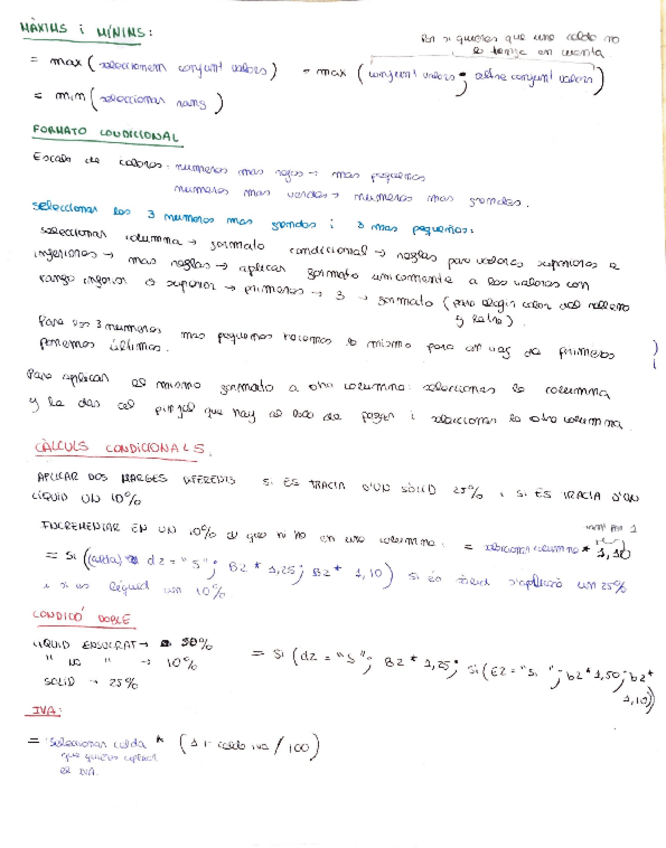 MÀXIMS i MÍNIMS:
Per si quieres que una celda no
lo tenga en cuenta
= max (seleccionem conjunt valors) = max (conjunt valors ; altre conjunt valors)
= min (seleccionar rang)
FORMATO CONDICIONAL
Escala de colores: numeros mas rojos → mas pequeños
numeros mas verdes → numeros mas grandes.
seleccionar los 3 numeros mas grandes i 3 mas pequeños:
seleccionar columna → formato condicional → reglas para valores superiores e
inferiores → mas reglas → aplicar formato unicamente a los valores con
rango inferior o superior → primeros → 3 → formato (para elegir color del relleno
y letra).
Para los 3 numeros mas pequeños hacemos lo mismo pero en vez de primeros
ponemos últimos.
Para aplicar el mismo formato a otra columna: seleccionas la columna
y le das al pincel que hay al lado de pegar i seleccionar la otra columna.
CÀLCULS CONDICIONALS.
APLICAR DOS MARGES DIFERENTS SI ES TRACTA D'UN SÒLID 25% i SI ES TRACTA D'UN
LÍQUID UN 10%
INCREMENTAR EN UN 10% el que hi ha en una columna: = seleccionar columna * 1,10
= si ((celda) d2 = "S"; B2 * 1,25; B2 * 1,10) si és sòlid s'aplicarà un 25%
i si es líquid un 10%
CONDICIÓ DOBLE
LIQUID ENSUCRAT → 50%
" NO " → 10%
SOLID → 25%
= si (d2 = "S"; B2 * 1,25; si (E2 = "si"; b2 * 1,50; b2 *
1,10))
IVA:
= seleccionar celda * (1+ celda iva / 100)
que quieres aplicar
el IVA.